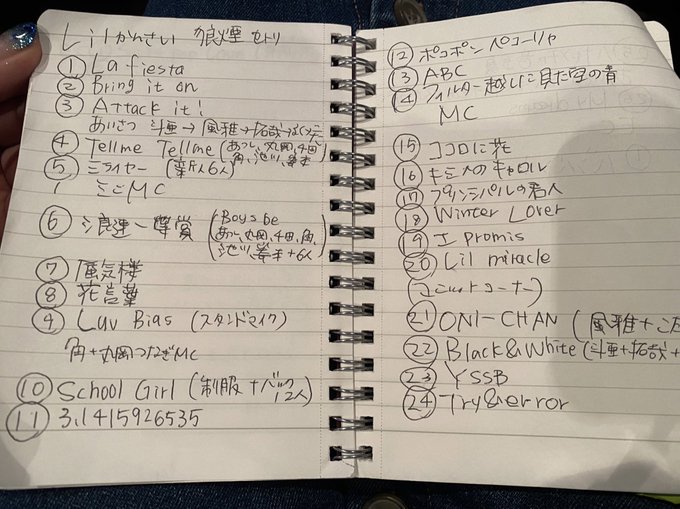 Lilかんさい 狼煙 セトリ
① La fiesta
② Bring it on
③ Attack it!
あいさつ 斗亜→風雅→拓哉→
④ Tellme Tellme (あつし、丸岡、千田、
角、池川、岸本
⑤ ミライヤー (新人6人)
ミニMC
⑥ 浪速一等賞 (Boys be
あつし、丸岡、千田、角、
池川、岸本+6人)
⑦ 蜃気楼
⑧ 花言葉
⑨ Luv Bias (スタンドマイク)
角+丸岡つなぎMC
⑩ School Girl (制服+バック
12人)
⑪ 3.1415926535
⑫ ポコポンペコーリャ
⑬ ABC
⑭ フィルター越しに見た空の青
MC
⑮ ココロに花
⑯ キミへのキャロル
⑰ プリンシパルの君へ
⑱ Winter Lover
⑲ I promis
⑳ Lil miracle
(ユニットコーナー)
㉑ ONI-CHAN (風雅+こた
㉒ Black&White (斗亜+拓哉+
㉓ YSSB
㉔ Try&error